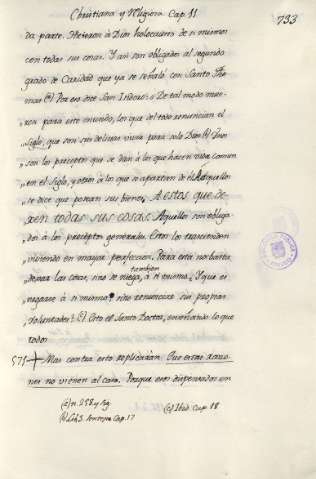 Christiana y Religiosa Cap. 11
733
da parte. Ofrezcan à Dios holocausto de si mismos
con todas sus cosas. Y asi son obligados al segundo
grado de Caridad que ya se señaló con Santo Tho-
mas (a) Por eso dice San Isidoro: De tal modo mue-
ren para este mundo, los que del todo renuncian el
siglo, que son sus delicias vivir para solo Dios (b)
son los preceptos que se dan à los que hacen vida comun
en el siglo, y otros à los que se apartan de èl. Aquellos
se dice que pongan sus bienes, A estos que de-
xen todas sus cosas. Aquellos son obliga-
dos à los preceptos generales. Estos los trascienden
viviendo en mayor perfeccion. Para esta no basta
dexar las cosas, sino se niega, tambien à si mismo. Y que es
negarse à si mismo, sino renunciar sus propias
voluntades? (c) Esto el Santo Doctor, enseñando lo que
todos
571 Mas contra esto replicaràn. Que estas razo-
nes no vienen al caso. Porque esos dispensados en
(a) n. 252 y sig.
(b) Lib. 3. Cap. 17
(c) Ibid. Cap. 18